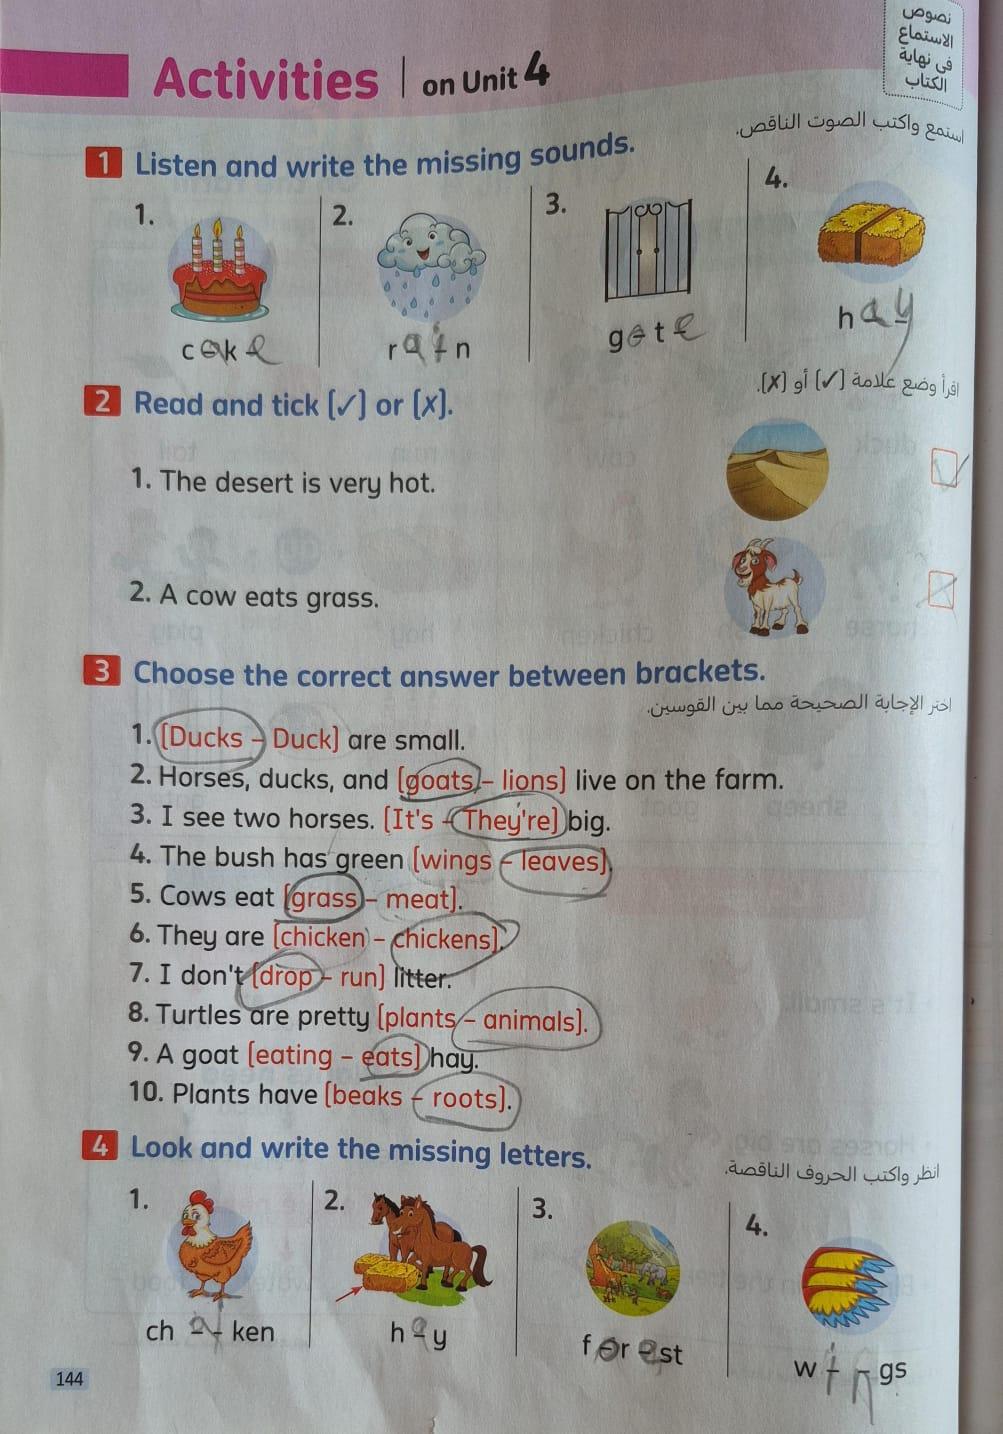 نصوص
الاستماع
في نهاية
الكتاب
Activities | on Unit 4
استمع واكتب الصوت الناقص.
1 Listen and write the missing sounds.
1. 2. 3. 4.
cake rain gate hay
اقرأ وضع علامة [✓] أو [✗].
2 Read and tick [✓] or [✗].
1. The desert is very hot. ✓
2. A cow eats grass. ✗
3 Choose the correct answer between brackets.
اختر الإجابة الصحيحة مما بين القوسين.
1. [Ducks – Duck] are small.
2. Horses, ducks, and [goats – lions] live on the farm.
3. I see two horses. [It's – They're] big.
4. The bush has green [wings – leaves].
5. Cows eat [grass – meat].
6. They are [chicken – chickens].
7. I don't [drop – run] litter.
8. Turtles are pretty [plants – animals].
9. A goat [eating – eats] hay.
10. Plants have [beaks – roots].
4 Look and write the missing letters.
انظر واكتب الحروف الناقصة.
1. 2. 3. 4.
ch ken hay forest wings
144